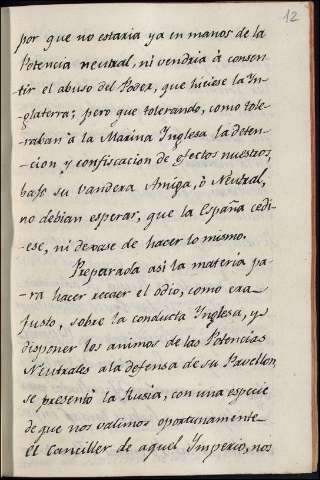 12
por que no estaria ya en manos de la
Potencia neutral, ni vendria à consen-
tir el abuso del Poder, que hiciese la Yn-
-glaterra; pero que tolerando, como tole-
raban à la Marina Ynglesa la deten-
-cion y confiscacion de efectos nuestros,
bajo su vandera Amiga, ò Neutral,
no debian esperar, que la España cedi-
-ese, ni dexase de hacer lo mismo.
Preparada asi la materia pa-
-ra hacer recaer el odio, como era
justo, sobre la conducta Ynglesa, y
disponer los animos de las Potencias
Neutrales a la defensa de su Pavellon,
se presentò la Rusia, con una especie
de que nos valimos oportunamente
El Canciller de aquel Ymperio, nos